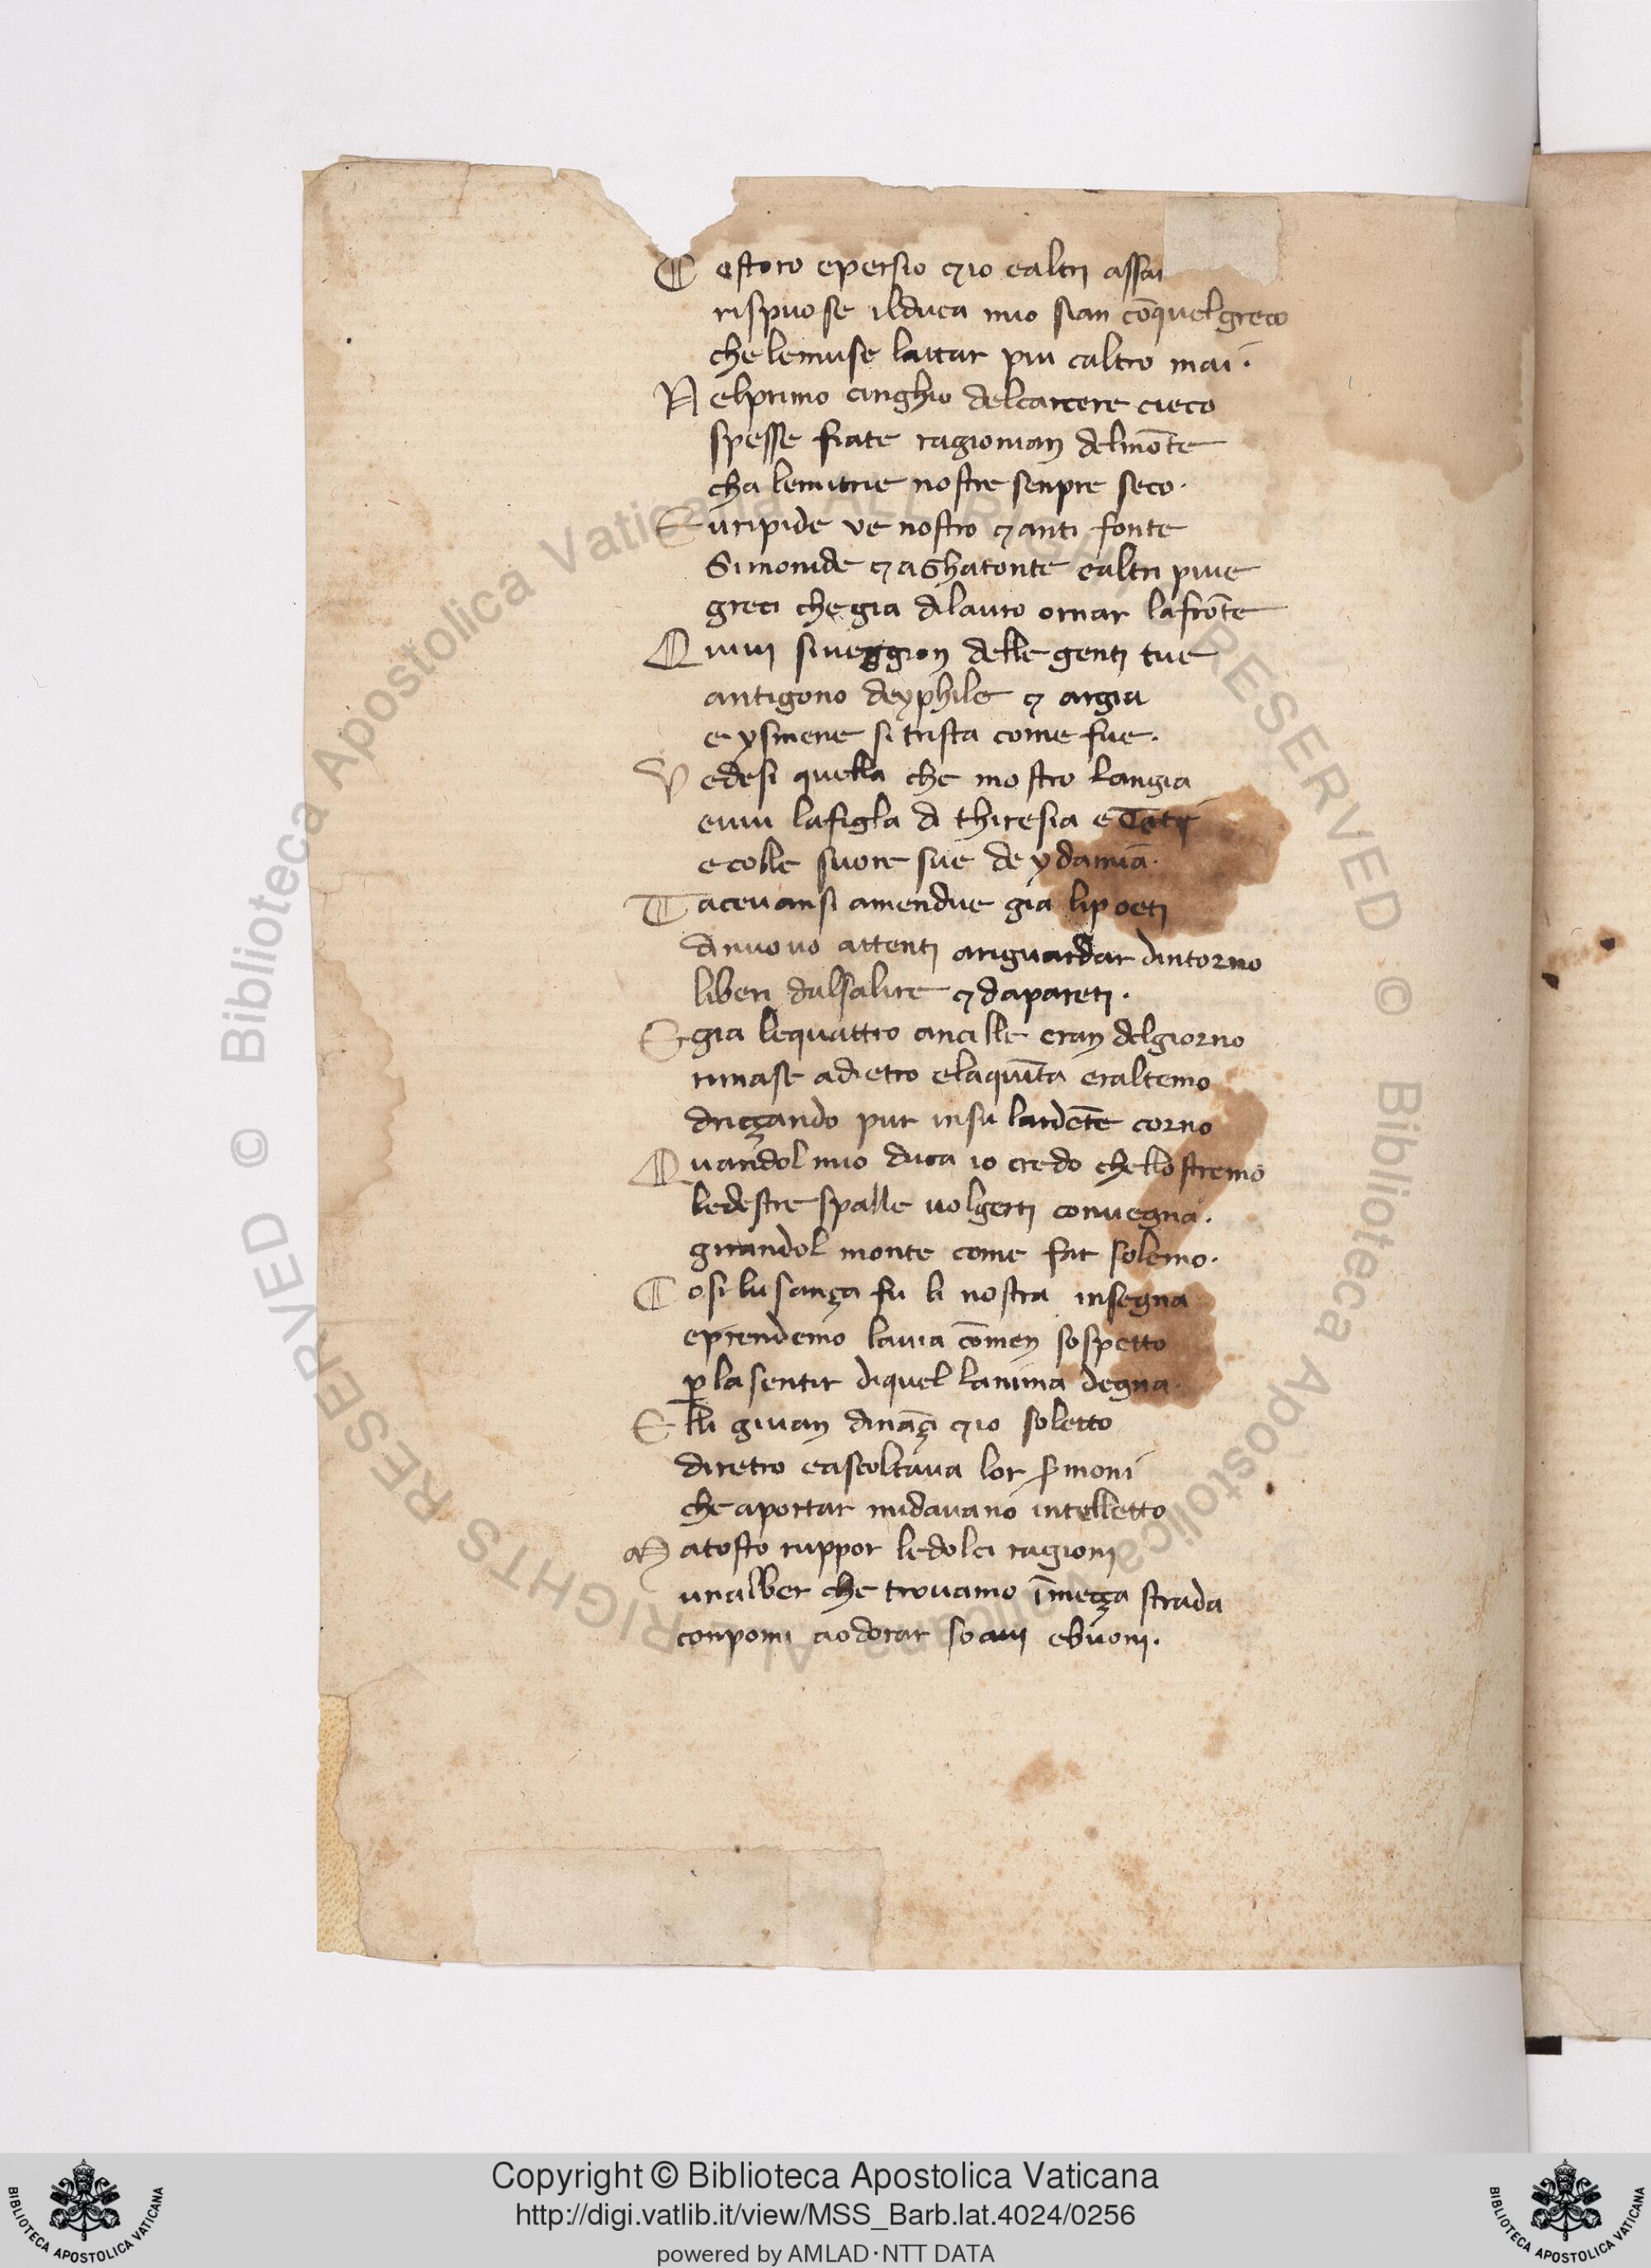 Costoro e persio ⁊ io e altri assai
rispuose il duca mio sian cō quel greco
che le muse lattar piu caltro mai.
Nel primo cinghio del carcere cieco
spesse fiate ragionian del mōte
cha le nutrie nostre senpre seco.
Euripide ve nostro ⁊ anti fonte
Simonide ⁊ aghatonte e altri piue
greci che gia di lauro ornar la frōte
Quiui si ueggion delle genti tue
antigono deyphile ⁊ argia
e ysmene si trista come fue.
Vedesi quella che mostro langia
euui la figla di thiresia e Teti
e colle suore sue deydamia.
Taceuansi amendue gia li poeti
di nuouo attenti a riguardar dintorno
liberi dal salire ⁊ da pareti.
E gia le quattro ancille eran del giorno
rimase adietro e la quīta eral temo
driççando pur in su lardēte corno
Quandol mio duca io credo che llo stremo
le destre spalle uolgerti conuegna.
girandol monte come far solemo.
Cosi lusança fu li nostra insegna
e prendemo la uia cō men sospetto
ꝑ lasentir di quel lanima degna.
Elli giuan dināçi ⁊ io soletto
diretro e ascoltaua lor s̄moni
che a portar mi dauano intelletto
Ma tosto ruppor le dolci ragioni
un alber che trouamo ī meçça strada
con pomi a odorar soaui e buoni.
Copyright © Biblioteca Apostolica Vaticana
http://digi.vatlib.it/view/MSS_Barb.lat.4024/0256
powered by AMLAD·NTT DATA
BIBLIOTECA APOSTOLICA VATICANA
BIBLIOTECA APOSTOLICA VATICANA
© Biblioteca Apostolica Vaticana ALL RIGHTS RESERVED
© Biblioteca Apostolica Vaticana ALL RIGHTS RESERVED